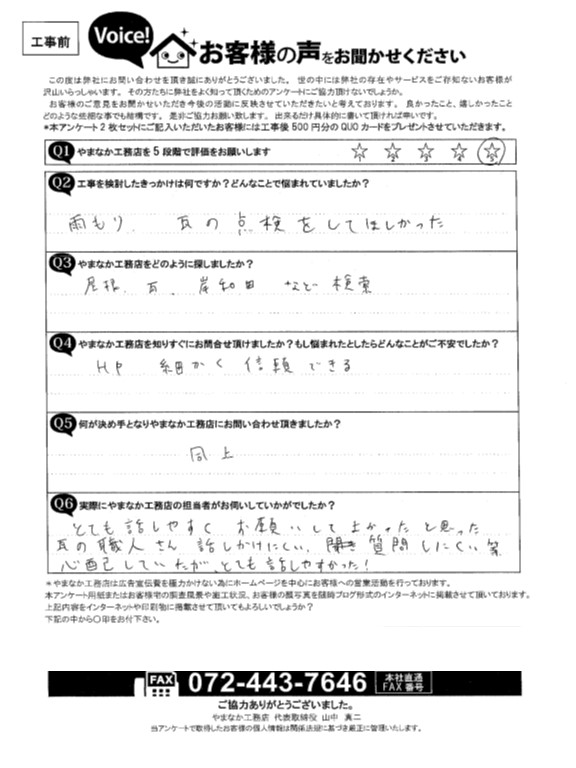 工事前
Voice!
お客様の声をお聞かせください
この度は弊社にお問い合わせを頂き誠にありがとうございました。 世の中には弊社の存在やサービスをご存知ないお客様が
沢山いらっしゃいます。 その方たちに弊社をよく知って頂くためのアンケートにご協力頂けないでしょうか。
お客様のご意見をお聞かせいただき今後の活動に反映させていただきたいと考えております。 良かったこと、嬉しかったこと
どのような些細な事でも結構です。 是非ご協力お願い致します。 出来るだけ具体的に書いて頂ければ幸いです。
*本アンケート2枚セットにご記入いただいたお客様には工事後500円分のQUOカードをプレゼントさせていただきます。
Q1 やまなか工務店を5段階で評価をお願いします ☆1 ☆2 ☆3 ☆4 ☆5
Q2 工事を検討したきっかけは何ですか?どんなことで悩まれていましたか?
雨もり、 瓦の点検をしてほしかった
Q3 やまなか工務店をどのように探しましたか?
屋根、瓦、岸和田 など 検索
Q4 やまなか工務店を知りすぐにお問合せ頂けましたか?もし悩まれたとしたらどんなことがご不安でしたか?
HP 細かく 信頼できる
Q5 何が決め手となりやまなか工務店にお問い合わせ頂きましたか?
同上
Q6 実際にやまなか工務店の担当者がお伺いしていかがでしたか?
とても話しやすく お願いして よかったと思った
瓦の職人さん 話しかけにくい、 質問しにくい等
心配していたが、とても話しやすかった!
*やまなか工務店は広告宣伝費を極力かけない為にホームページを中心にお客様への営業活動を行っております。
本アンケート用紙またはお客様宅の調査風景や施工状況、お客様の顔写真を随時ブログ形式のインターネットに掲載させて頂いております。
上記内容をインターネットや印刷物に掲載させて頂いてもよろしいでしょうか?
下記の中から〇印をお付下さい。
FAX 072-443-7646 本社直通 FAX番号
ご協力ありがとうございました。
やまなか工務店 代表取締役 山中 真二
当アンケートで取得したお客様の個人情報は関係法規に基づき厳正に管理いたします。